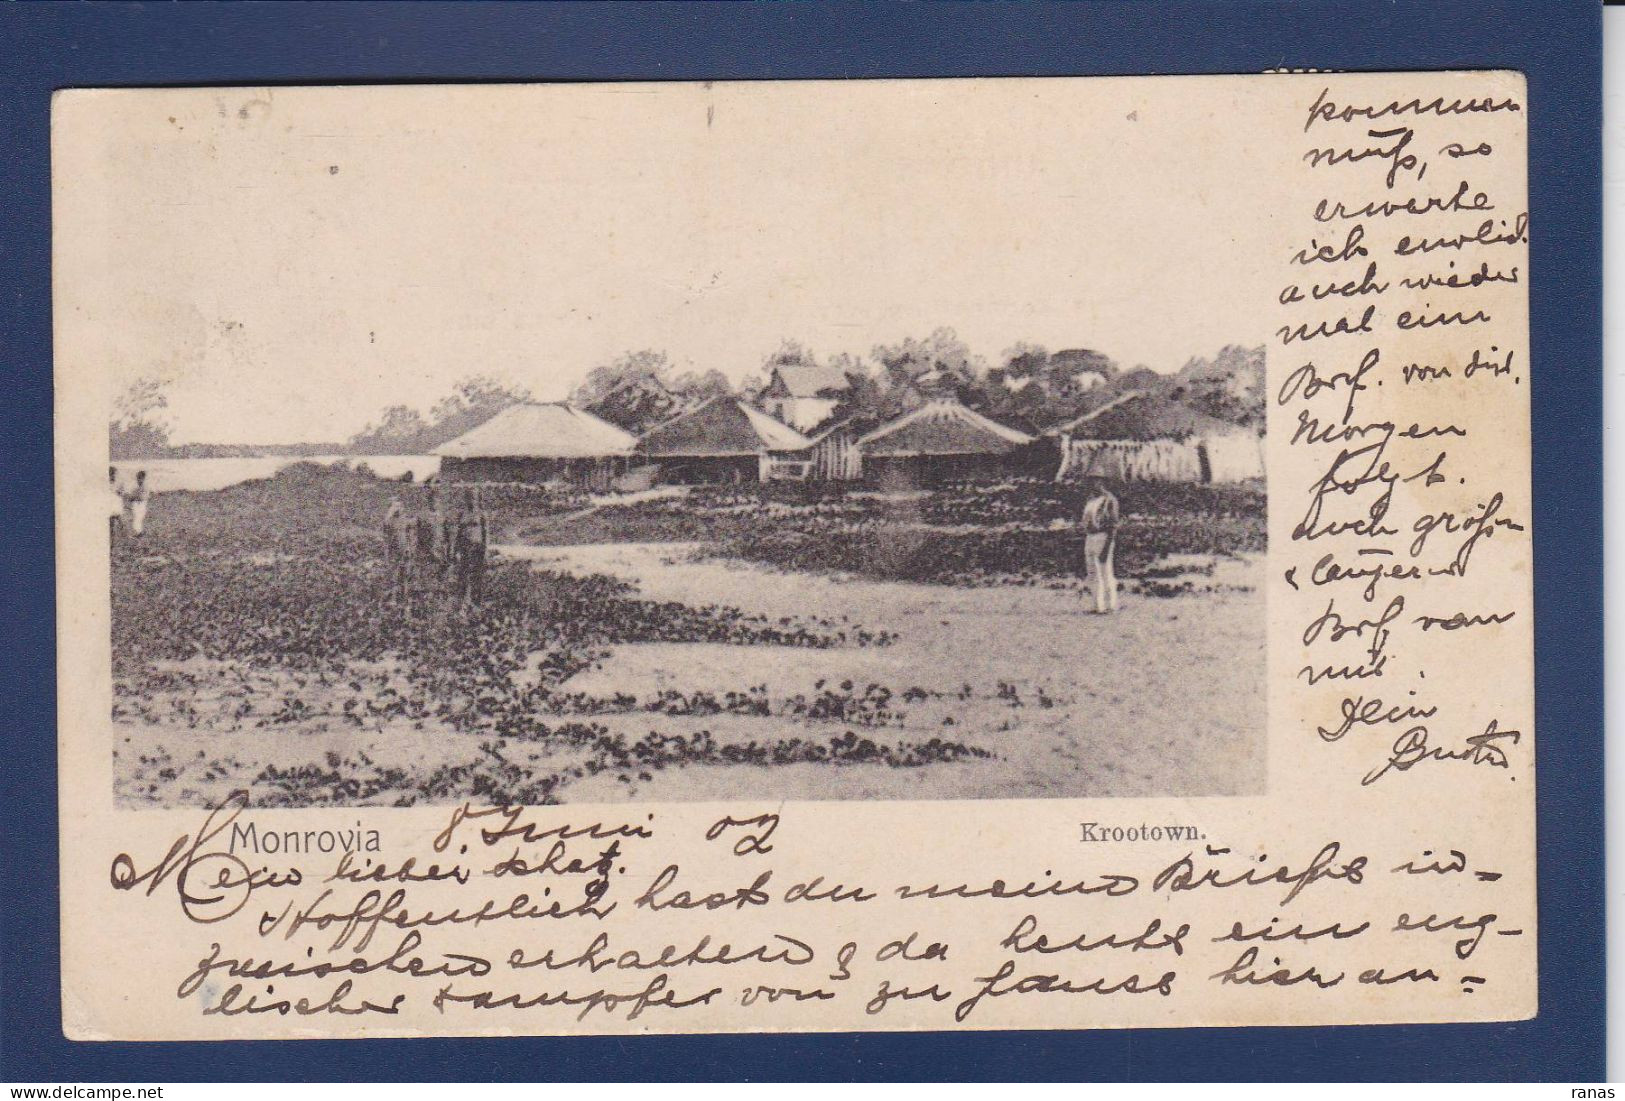 Monrovia 8 Juni 02
Krootown.
Mein lieber Schatz.
Hoffentlich hast du meine Briefe in=
zwischen erhalten & da heute ein eng-
lischer Dampfer von zu Hause hier an=
kommen
muß, so
erwarte
ich endlich
auch wieder
mal ein
Brf. von dir.
Morgen
folgt
auch größern
& längern
Brf. von
mir.
Dein
ranas